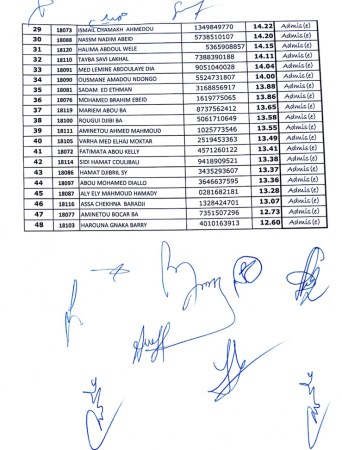 29 18073 ISMAIL CHAMAKH AHMEDOU 1349849770 14.22 Admis(e)
30 18088 NASSM NADIM ABEID 5738510107 14.20 Admis(e)
31 18120 HALIMA ABDOUL WELE 5365908857 14.15 Admis(e)
32 18110 TAYBA SAVI LAKHAL 7388390188 14.11 Admis(e)
33 18091 MED LEMINE ABDOULAYE DIA 9051040028 14.04 Admis(e)
34 18090 OUSMANE AMADOU NDONGO 5524731807 14.00 Admis(e)
35 18081 SADAM ED ETHMAN 3168856917 13.88 Admis(e)
36 18076 MOHAMED BRAHIM EBEID 1619775065 13.86 Admis(e)
37 18119 MARIEM ABOU BA 8737562412 13.65 Admis(e)
38 18100 ROUGUI DJIBI BA 5061710649 13.58 Admis(e)
39 18111 AMINETOU AHMED MAHMOUD 1025773546 13.55 Admis(e)
40 18105 VARHA MED ELHAJ MOKTAR 2519453363 13.49 Admis(e)
41 18072 FATIMATA ABOU KELLY 4571260122 13.41 Admis(e)
42 18114 SIDI HAMAT COULIBALI 9418909521 13.38 Admis(e)
43 18086 HAMAT DJIBRIL SY 3435293607 13.37 Admis(e)
44 18097 ABOU MOHAMED DIALLO 3646637595 13.36 Admis(e)
45 18087 ALY ELY MAHMOUD HAMADY 0281682181 13.28 Admis(e)
46 18116 ASSA CHEKHNA BARADJI 1328424701 13.07 Admis(e)
47 18077 AMINETOU BOCAR BA 7351507296 12.73 Admis(e)
48 18103 HAROUNA GNAKA BARRY 4010163913 12.60 Admis(e)